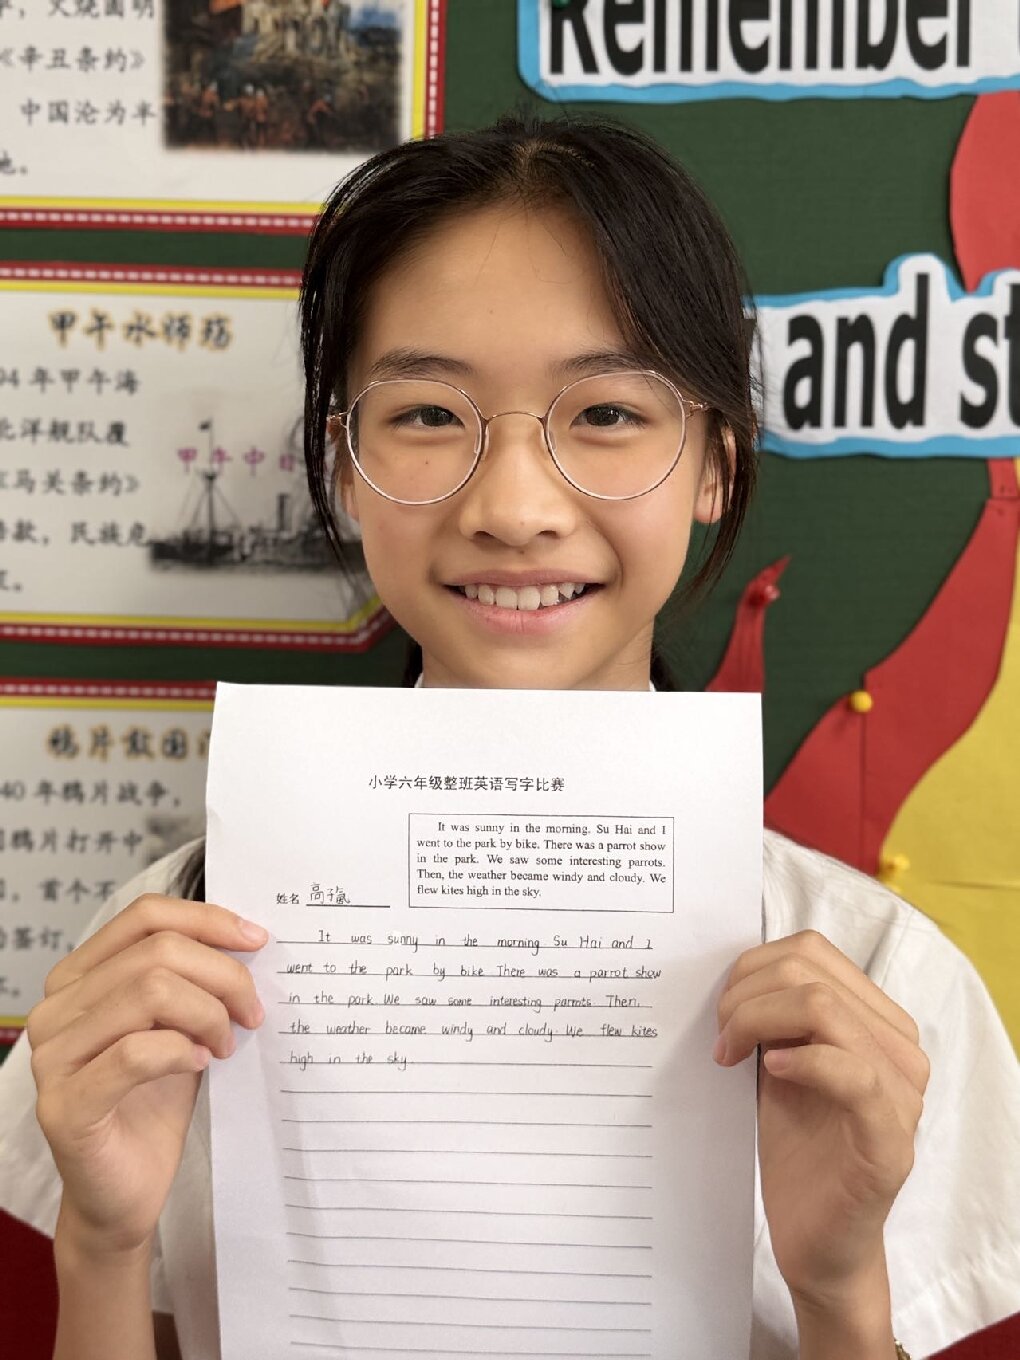 火烧圆明
《辛丑条约》
中国沦为半
地。
甲午水师殇
94年甲午海
北洋舰队覆
《马关条约》
赔款，民族危
甲午中日
鸦片敲国门
40年鸦片战争，
鸦片打开中
，首个不
的签订，
Remember
and st
小学六年级整班英语写字比赛
It was sunny in the morning. Su Hai and I
went to the park by bike. There was a parrot show
in the park. We saw some interesting parrots.
Then, the weather became windy and cloudy. We
flew kites high in the sky.
姓名 高子
It was sunny in the morning Su Hai and I
went to the park by bike There was a parrot show
in the park We saw some interesting parrots Then,
the weather become windy and cloudy. We flew kites
high in the sky